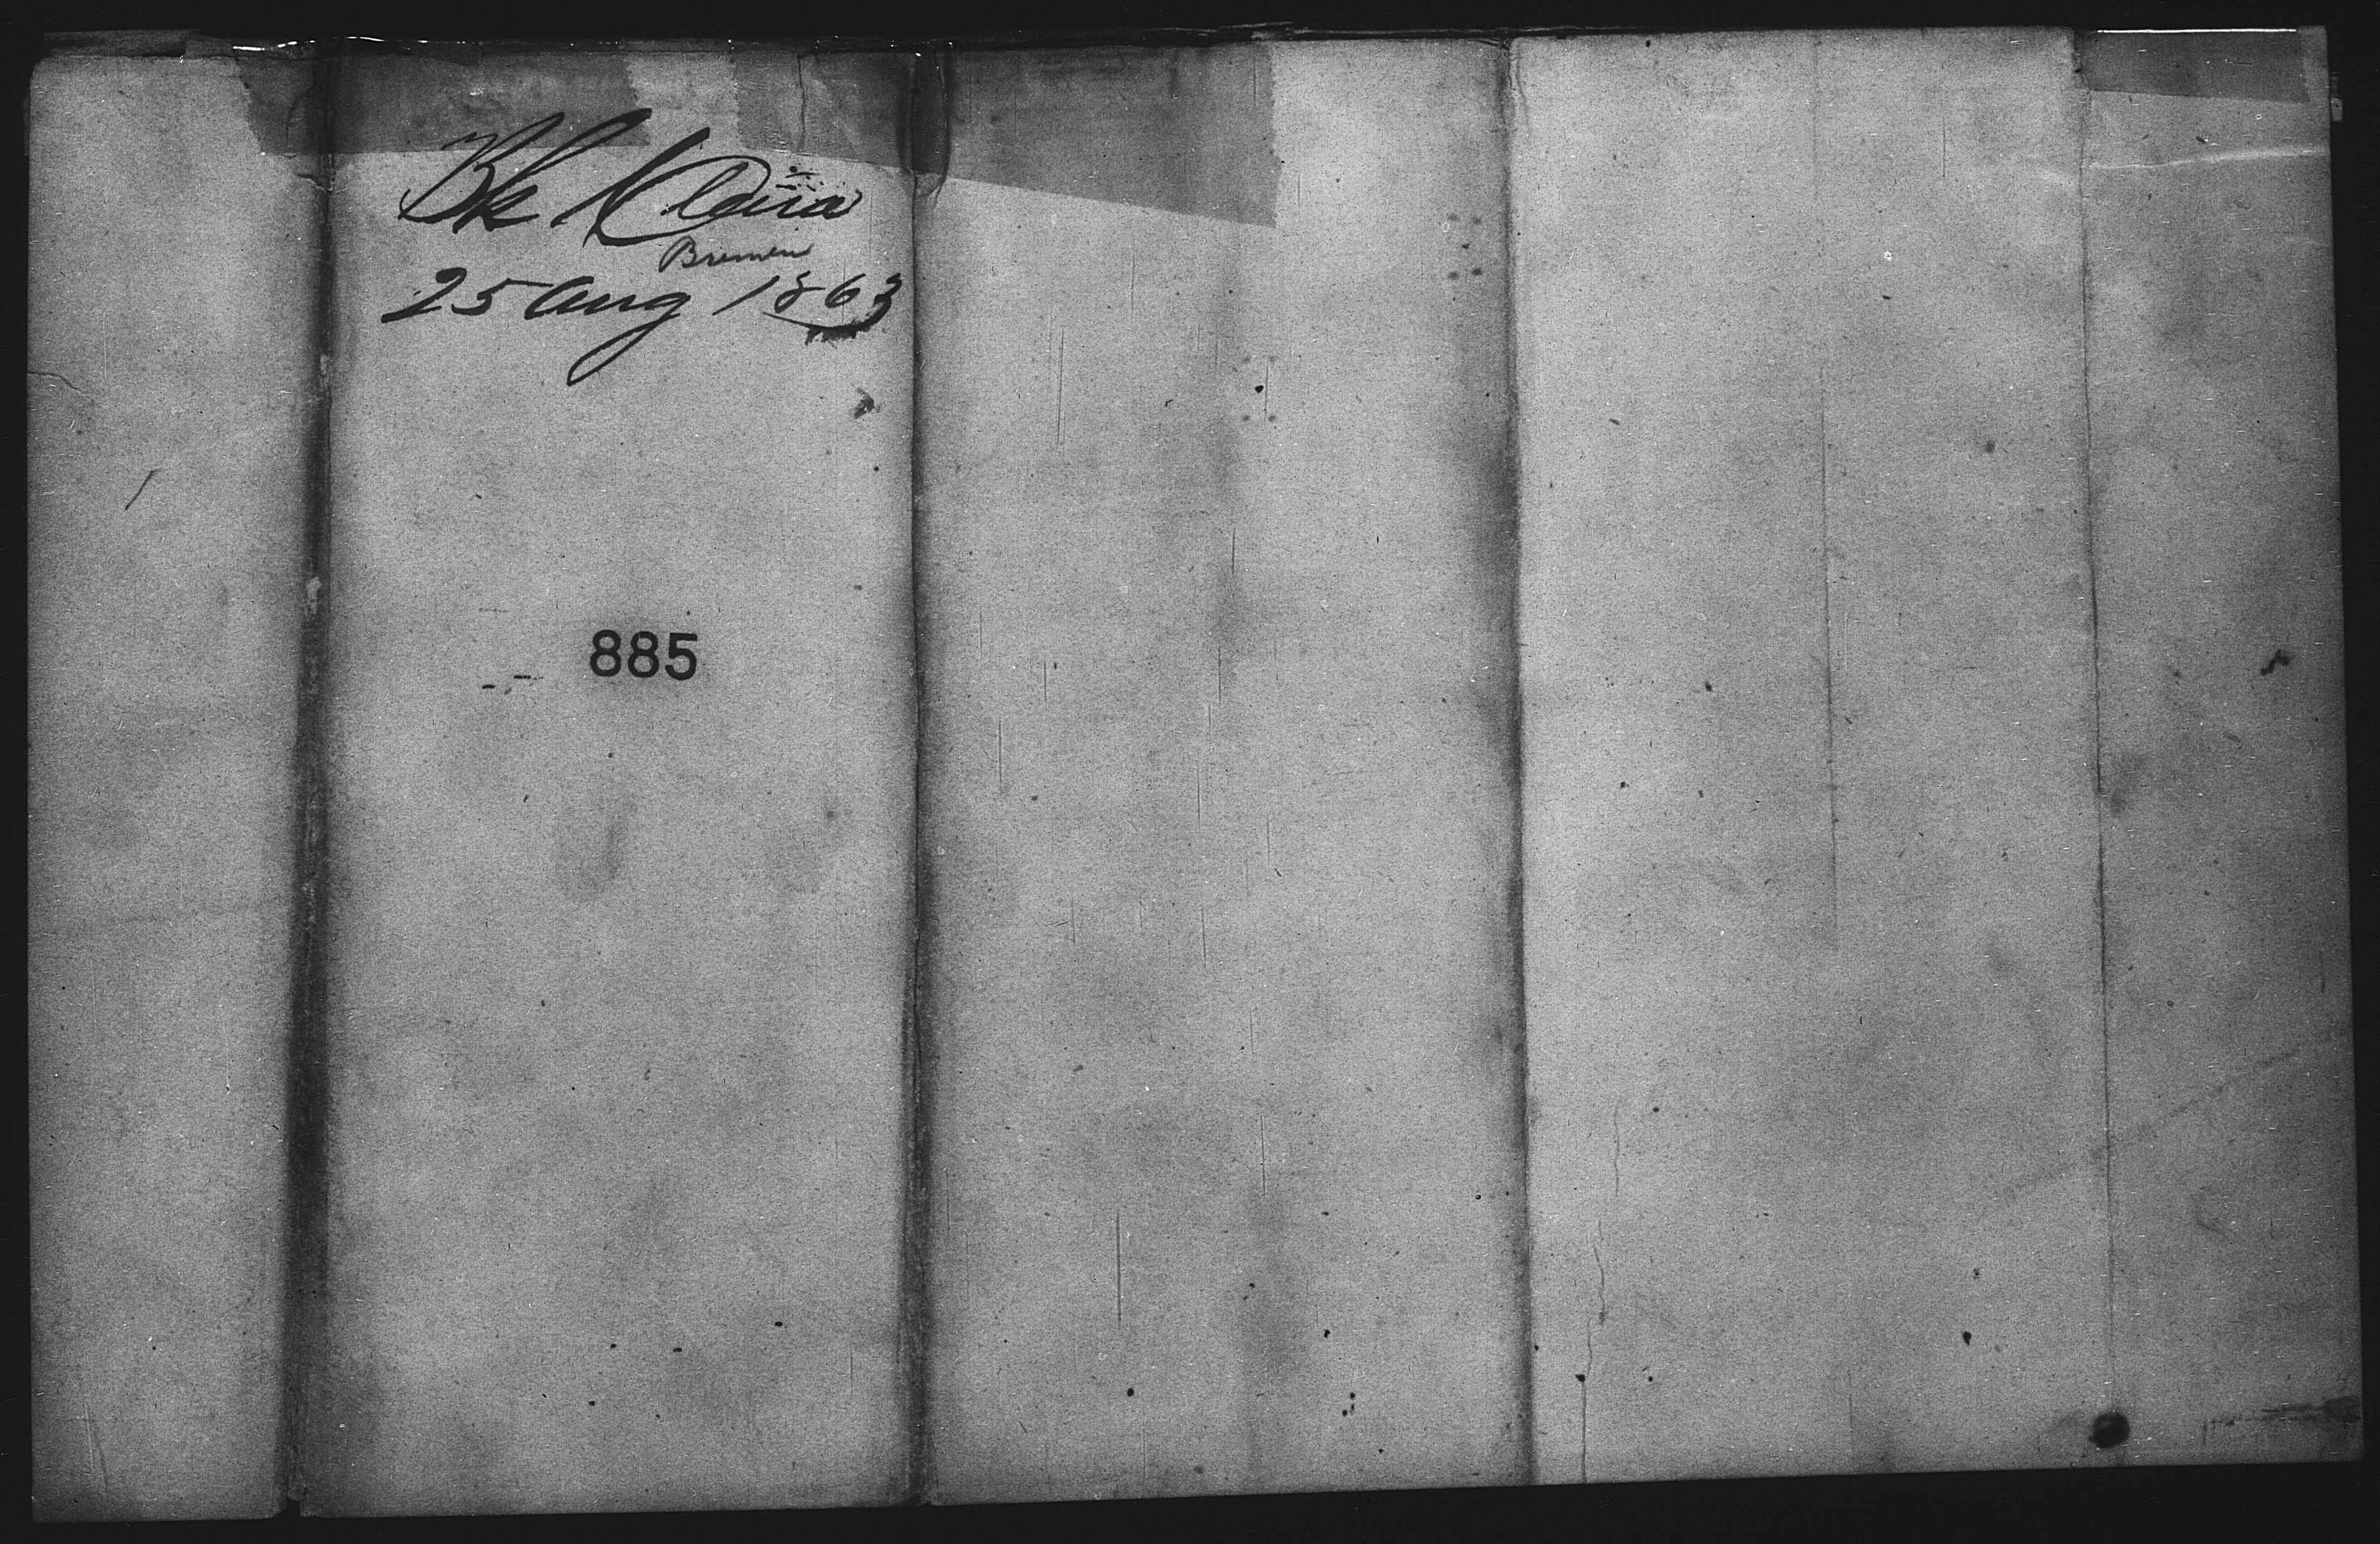 Bk Clara
Bremen
25 Aug 1863
885